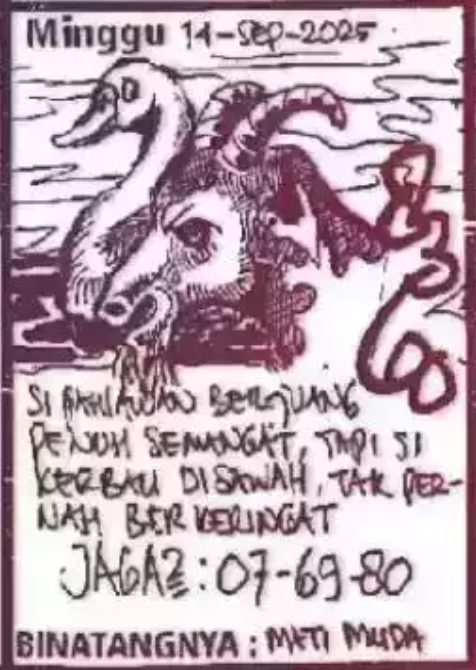 Minggu 14-Sep-2025
SI PAHLAWAN BERJUANG
PENUH SEMANGAT, TAPI SI
KERBAU DISAWAH, TAK PER-
NAH BERKERINGAT
JAGA2: 07-69-80
BINATANGNYA: MATI MUDA